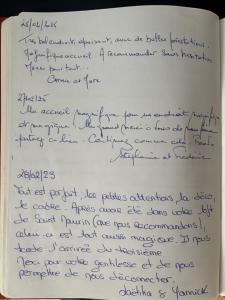 Très bel endroit, apaisant, avec de belles prestations.
Magnifique accueil. A recommander sans hésitation
Merci pour tout.
Un accueil magnifique pour un endroit magnifique
et magique. Un grand merci à tous de nous
partager ce lieu. Continuez comme cela.
Stéphanie et
28/02/25
Tout est parfait, les petites attentions, la déco,
le cadre. Après avoir été dans votre loft
de Saint Maurin (que nous recommandons),
celui-ci est tout aussi magique. Il nous
tarde l'arrivée du troisième
Merci pour votre gentillesse et de nous
permettre de nous déconnecter.
Laetitia & Yannick